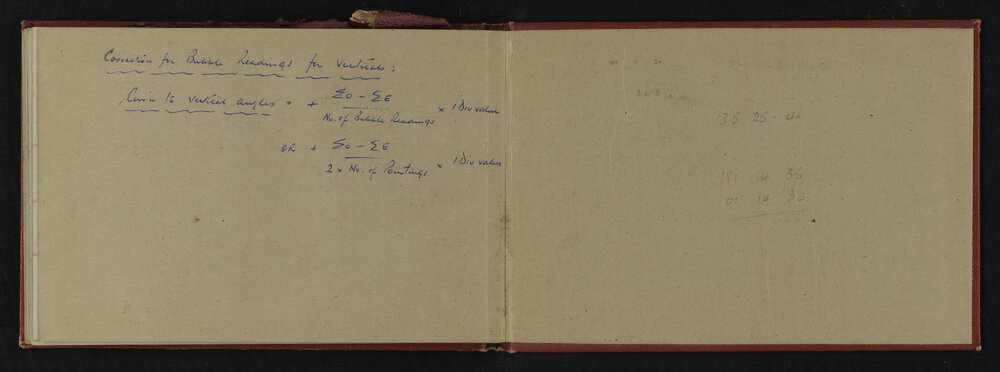 Correction for Bubble Readings for Verticals:
Corr'n to vertical angles = + ΣO - ΣE
No. of Bubble Readings × 1 Div value
OR + ΣO - ΣE
2 × No. of Pointings × 1 Div value
135 25 40
181 14 35
01 14 30